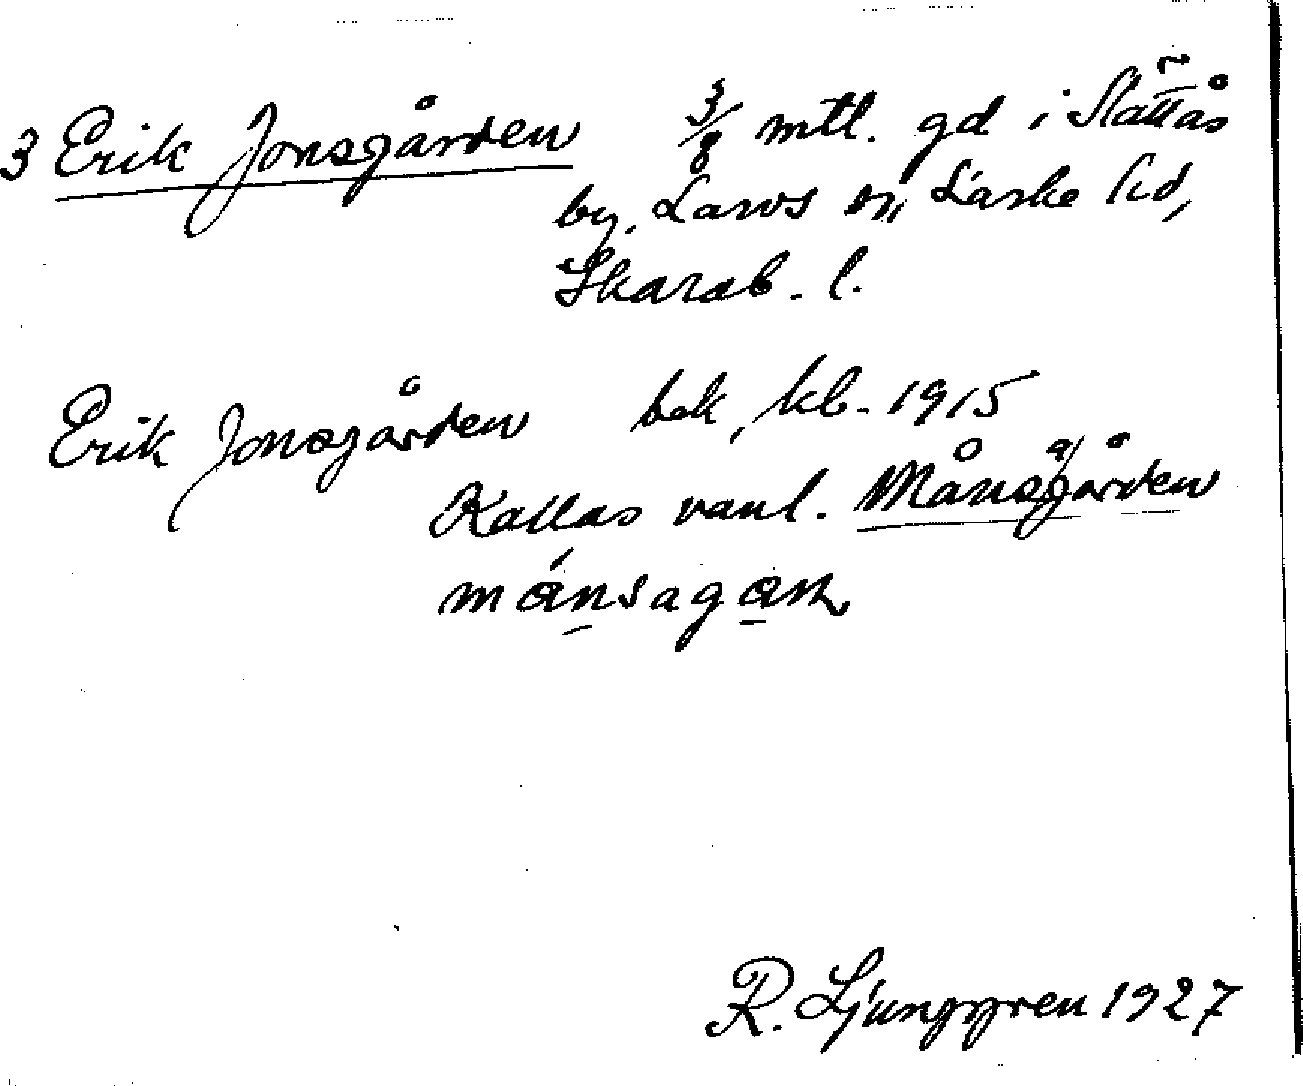 3 Erik Jonsgården 3/8 mtl. gd i Slättås
by, Larvs sn, Laske hd,
Skarab. l.
Erik Jonsgården bok, kb. 1915
Kallas vanl. Månsgården
R. Ljunggren 1927